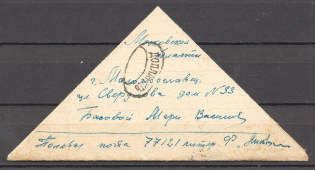 Московской
области
г. Малоярославец
ул Свердлова дом № 33
Базовой Мари
ДОПЛАТ
Полевая почта 77121 литер Ф.